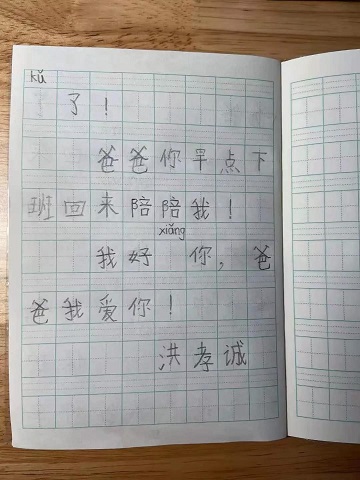 kǔ
了！
爸爸你早点下
班回来陪陪我！
xiǎng
我好 你，爸
爸我爱你！
洪孝诚